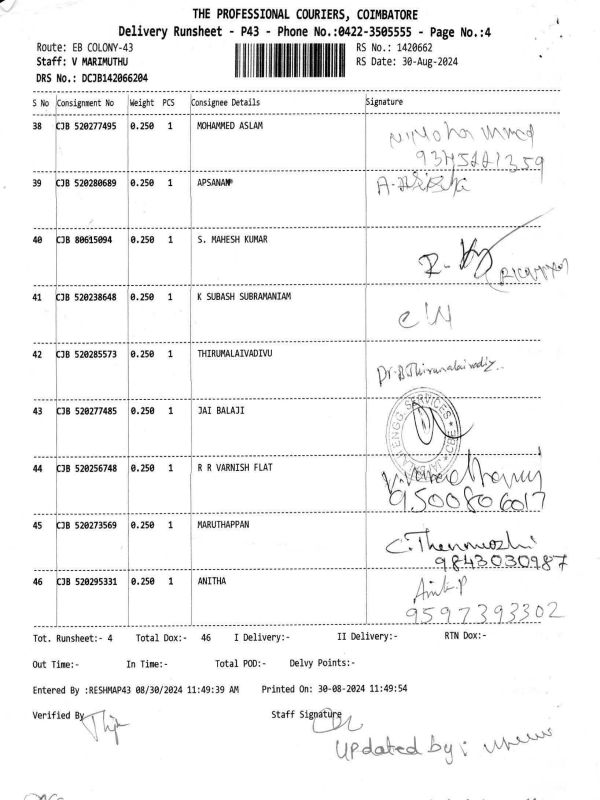 THE PROFESSIONAL COURIERS, COIMBATORE
Delivery Runsheet - P43 - Phone No.:0422-3505555 - Page No.:4
Route: EB COLONY-43 RS No.: 1420662
Staff: V MARIMUTHU RS Date: 30-Aug-2024
DRS No.: DCJB142066204
S No Consignment No Weight PCS Consignee Details Signature
38 CJB 520277495 0.250 1 MOHAMMED ASLAM
39 CJB 520280689 0.250 1 APSANAM
40 CJB 80615094 0.250 1 S. MAHESH KUMAR
41 CJB 520238648 0.250 1 K SUBASH SUBRAMANIAM
42 CJB 520285573 0.250 1 THIRUMALAIVADIVU
Dr.B.Thirumalaivadiv..
43 CJB 520277485 0.250 1 JAI BALAJI
ENGG. SERVICES
44 CJB 520256748 0.250 1 R R VARNISH FLAT
9500806017
45 CJB 520273569 0.250 1 MARUTHAPPAN
C.Thenmozhi
9843030987
46 CJB 520295331 0.250 1 ANITHA
Anitha.P
9597393302
Tot. Runsheet:- 4 Total Dox:- 46 I Delivery:- II Delivery:- RTN Dox:-
Out Time:- In Time:- Total POD:- Delvy Points:-
Entered By :RESHMAP43 08/30/2024 11:49:39 AM Printed On: 30-08-2024 11:49:54
Verified By Staff Signature
Updated by :